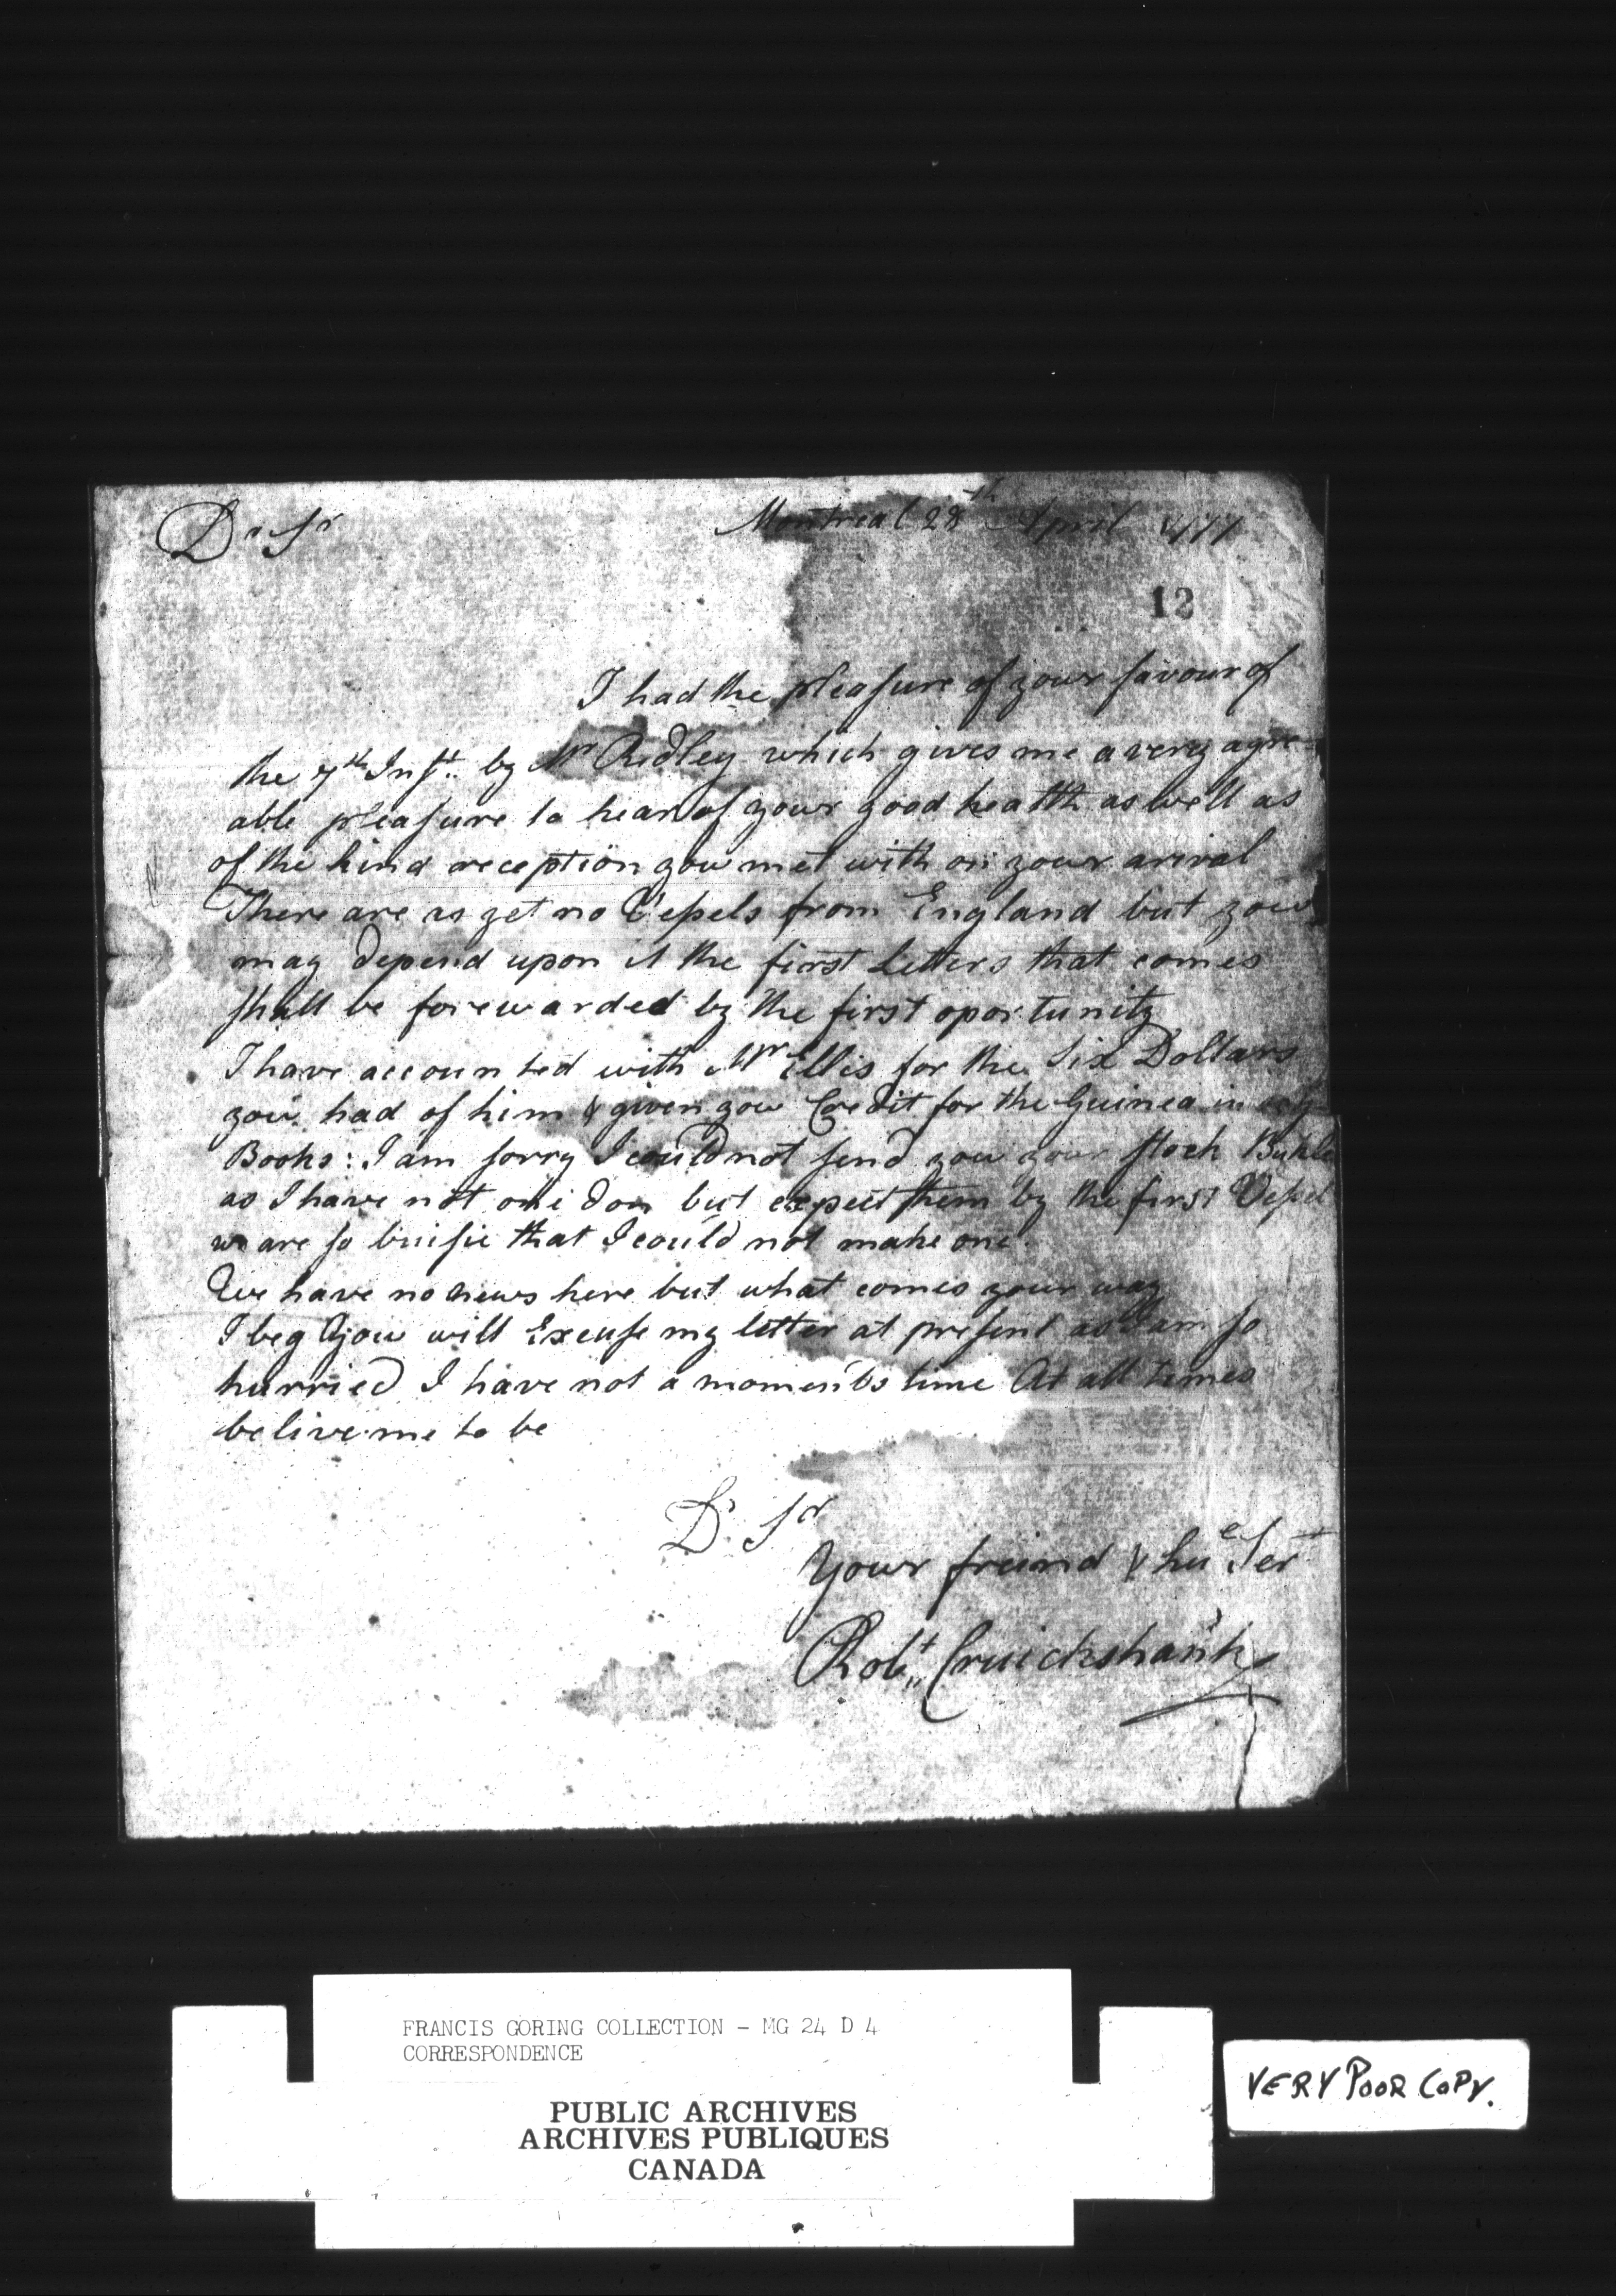 Dr Sr
Montreal 28th April 1777
12
I had the pleasure of your favour of
the 7th Inst. by Mr Ridley which gives me a very agre
able pleasure to hear of your good health as well as
of the kind reception you met with on your arival
There are as yet no Vessels from England but you
may depend upon it the first Letters that comes
shall be forewarded by the first oportunity
I have accounted with Mr Ellis for the Six Dollars
you had of him & given you Credit for the Guinea in my
Books: I am sorry I could not send you your stock Bukle
as I have not one don but expect them by the first Vessel
we are so buisie that I could not make one.
We have no news here but what comes your way
I beg you will Excuse my letter at present as I am so
hurried I have not a moment's time At all times
belive me to be
Dr Sr
Your freind & hue Sert
Robt Cruickshank
FRANCIS GORING COLLECTION - MG 24 D 4
CORRESPONDENCE
PUBLIC ARCHIVES
ARCHIVES PUBLIQUES
CANADA
VERY POOR COPY.